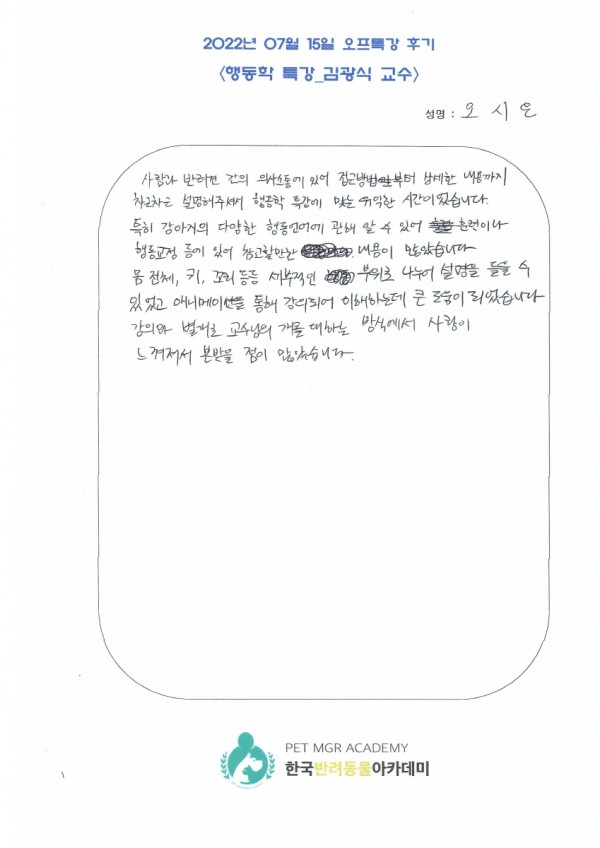 2022년 07월 15일 오프특강 후기
<행동학 특강_김광식 교수>
성명 : 오 시 은
사람과 반려견 간의 의사소통에 있어 접근방법부터 상세한 내용까지
차근차근 설명해주셔서 행동학 특강에 맞는 유익한 시간이었습니다.
특히 강아지의 다양한 행동언어에 관해 알 수 있어 훈련이나
행동교정 등에 있어 참고할만한 내용이 많았습니다
몸 전체, 귀, 꼬리 등등 세부적인 부위로 나누어 설명을 들을 수
있었고 애니메이션을 통해 강의되어 이해하는데 큰 도움이 되었습니다
강의와 별개로 교수님의 개를 대하는 방식에서 사랑이
느껴져서 본받을 점이 많았습니다.
PET MGR ACADEMY
한국반려동물아카데미